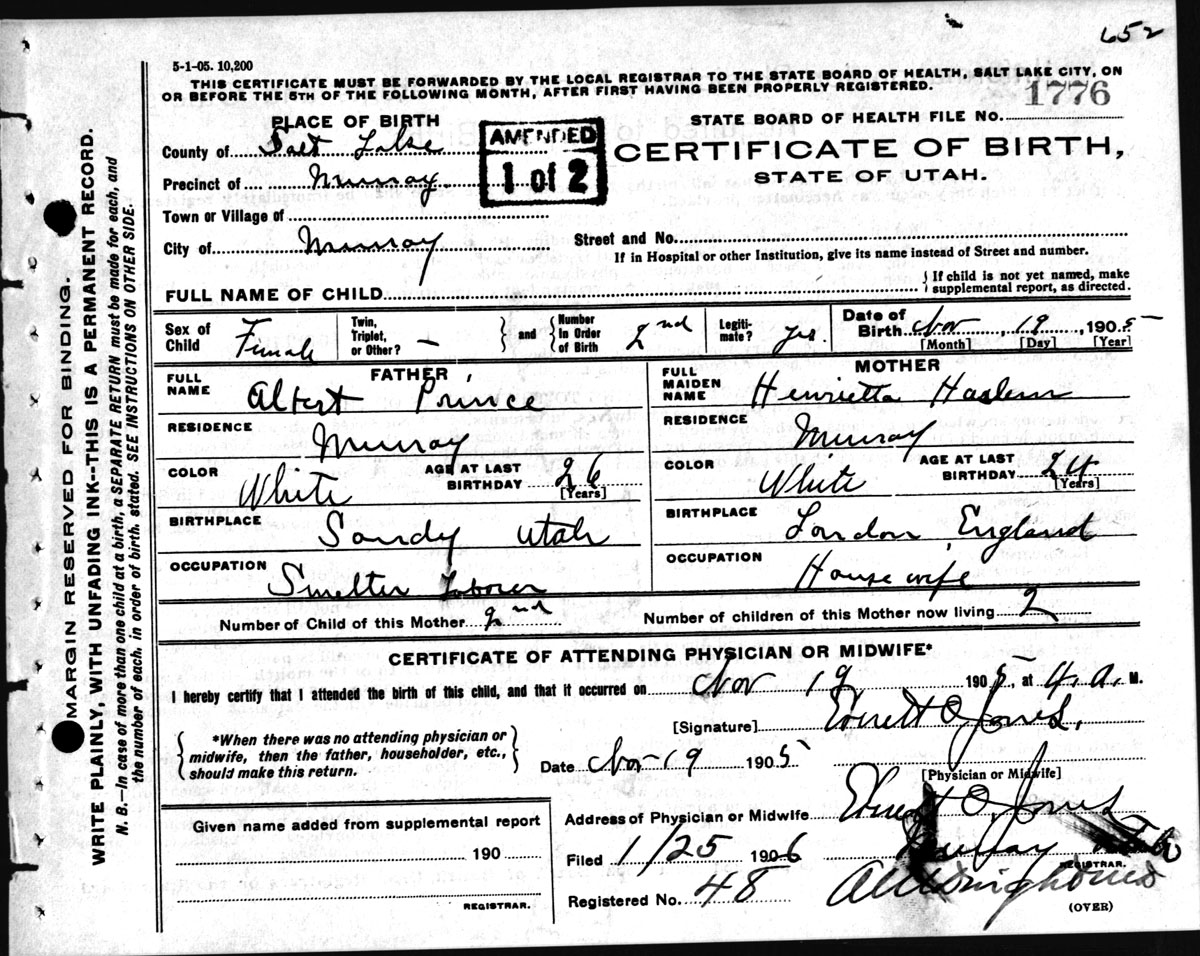 652
5-1-05. 10,200
THIS CERTIFICATE MUST BE FORWARDED BY THE LOCAL REGISTRAR TO THE STATE BOARD OF HEALTH, SALT LAKE CITY, ON
OR BEFORE THE 5TH OF THE FOLLOWING MONTH, AFTER FIRST HAVING BEEN PROPERLY REGISTERED.
1776
PLACE OF BIRTH
STATE BOARD OF HEALTH FILE NO.
AMENDED
1 of 2
County of Salt Lake
CERTIFICATE OF BIRTH,
STATE OF UTAH.
Precinct of Murray
Town or Village of
City of Murray
Street and No.
If in Hospital or other Institution, give its name instead of Street and number.
FULL NAME OF CHILD
{If child is not yet named, make
supplemental report, as directed.
Sex of Child Female
Twin, Triplet, or Other? -
and
Number In Order of Birth 2nd
Legitimate? yes
Date of Birth Nov, 19, 1905
[Month] [Day] [Year]
FATHER
MOTHER
FULL NAME Albert Prince
FULL MAIDEN NAME Henrietta Haslem
RESIDENCE Murray
RESIDENCE Murray
COLOR White
AGE AT LAST BIRTHDAY 26
[Years]
COLOR White
AGE AT LAST BIRTHDAY 24
[Years]
BIRTHPLACE Sandy Utah
BIRTHPLACE London, England
OCCUPATION Smelter Laborer
OCCUPATION Housewife
Number of Child of this Mother 2nd
Number of children of this Mother now living 2
CERTIFICATE OF ATTENDING PHYSICIAN OR MIDWIFE*
I hereby certify that I attended the birth of this child, and that it occurred on Nov 19 1905, at 4. A. M.
[Signature] Everett O Jones,
*When there was no attending physician or
midwife, then the father, householder, etc.,
should make this return.
Date Nov 19 1905
[Physician or Midwife]
Address of Physician or Midwife O. Jones
Murray
Given name added from supplemental report
190
REGISTRAR.
Filed 1/25 1906
REGISTRAR.
Registered No. 48
(OVER)
MARGIN RESERVED FOR BINDING.
WRITE PLAINLY, WITH UNFADING INK--THIS IS A PERMANENT RECORD.
N. B.—In case of more than one child at a birth, a SEPARATE RETURN must be made for each, and
the number of each, in order of birth, stated. SEE INSTRUCTIONS ON OTHER SIDE.